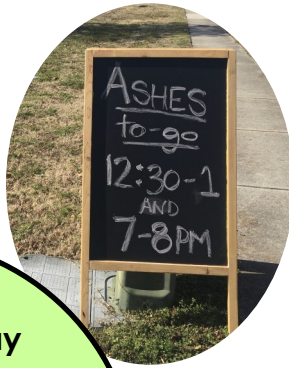 ASHES
to-go
12:30-1
AND
7-8PM